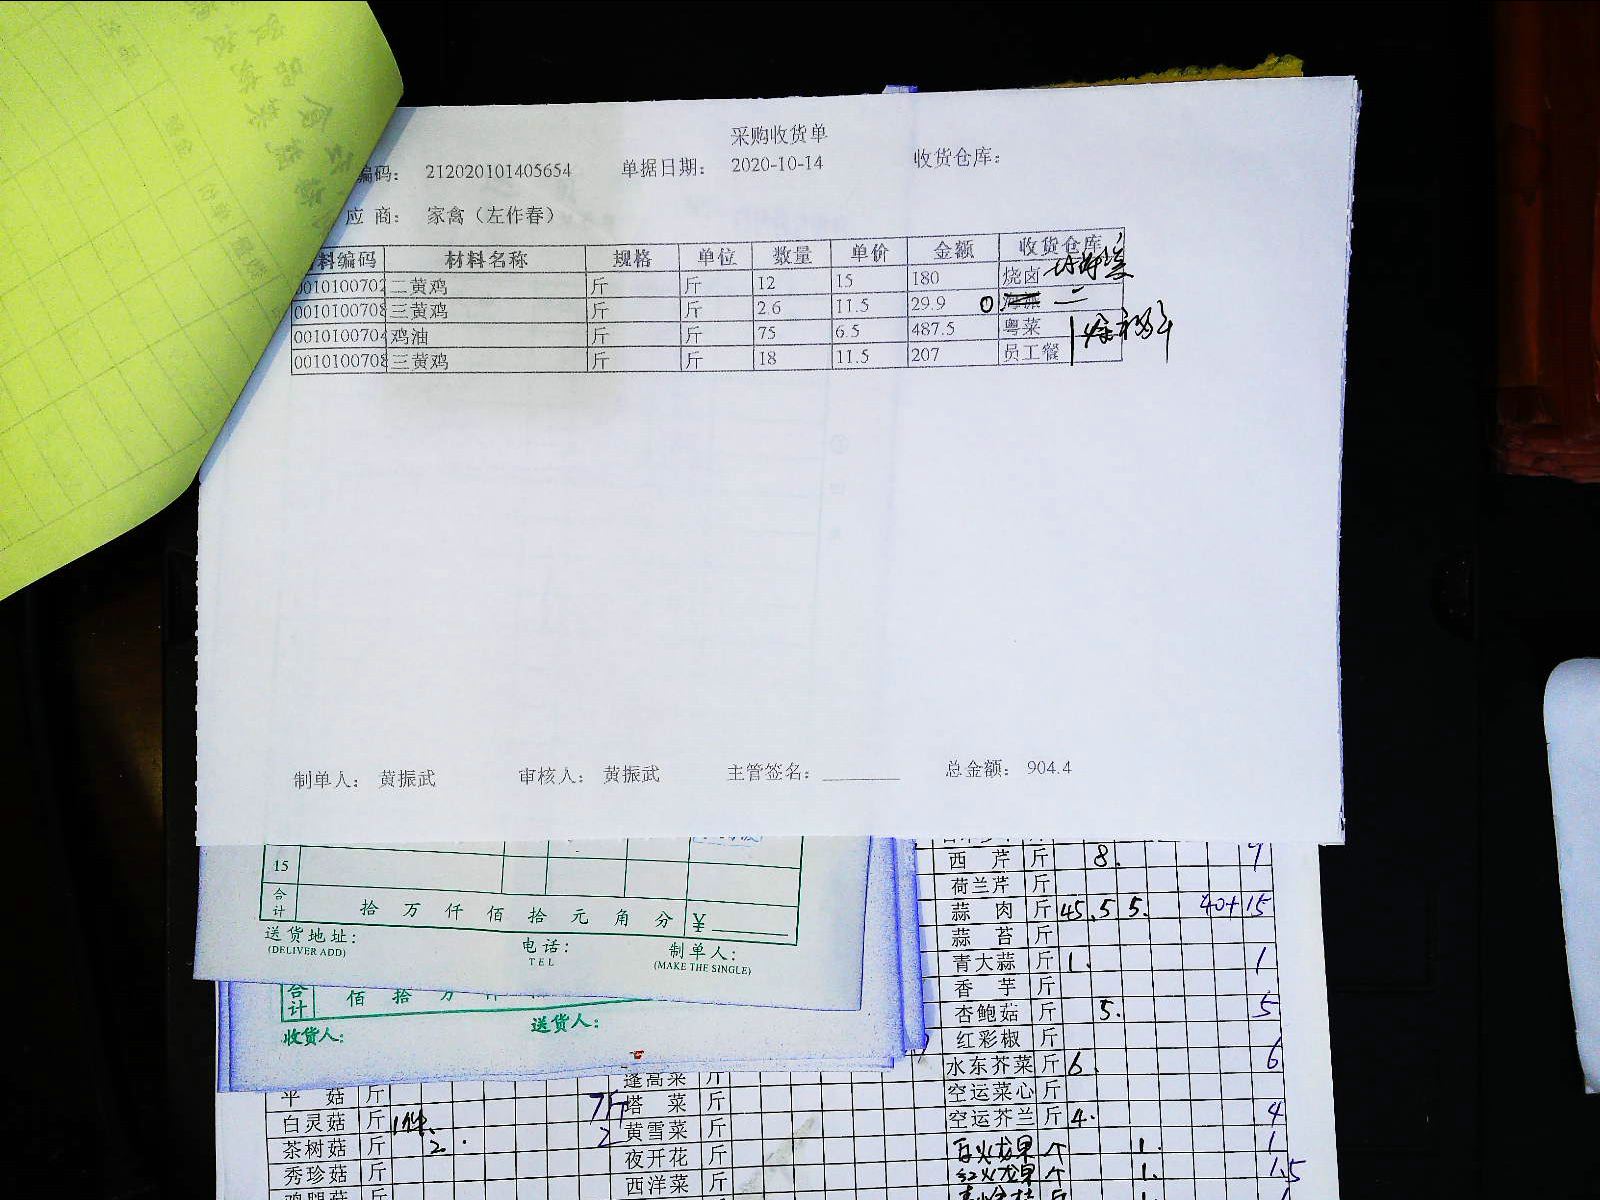 采购收货单
编码: 212020101405654 单据日期: 2020-10-14 收货仓库:
应 商: 家禽（左作春）
料编码 材料名称 规格 单位 数量 单价 金额 收货仓库
0010100702 二黄鸡 斤 斤 12 15 180 烧卤
0010100708 三黄鸡 斤 斤 2.6 11.5 29.9
0010100704 鸡油 斤 斤 75 6.5 487.5 粤菜
0010100708 三黄鸡 斤 斤 18 11.5 207 员工餐
制单人: 黄振武 审核人: 黄振武 主管签名: 总金额: 904.4
15
合计 拾 万 仟 佰 拾 元 角 分 ¥
送货地址: 电话: 制单人:
(DELIVER ADD) TEL (MAKE THE SINGLE)
合计 佰 拾 万
收货人: 送货人:
西 芹 斤 8.
荷兰芹 斤
蒜 肉 斤 45.5 5. 40+15
蒜 苔 斤
青大蒜 斤 1. 1
香 芋 斤
杏鲍菇 斤 5. 5
红彩椒 斤
水东芥菜 斤 6. 6
空运菜心 斤
空运芥兰 斤 4. 4
白火龙果 个 1. 1
红火龙果 个 1. 1.5
平 菇 斤 蓬蒿菜 斤
白灵菇 斤 1件 7斤 塔 菜 斤
茶树菇 斤 2. 2 黄雪菜 斤
秀珍菇 斤 夜开花 斤
西洋菜 斤